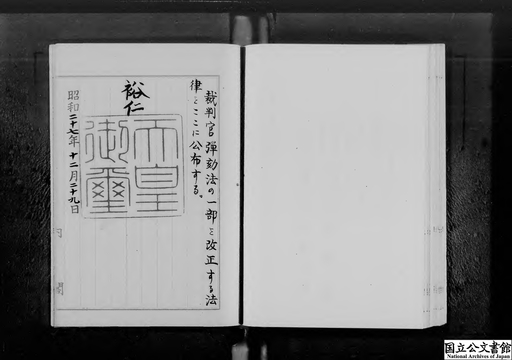 裁判官弾劾法の一部を改正する法
律をここに公布する。
裕仁
天皇
御璽
昭和二十七年十二月二十九日
内閣
国立公文書館
National Archives of Japan